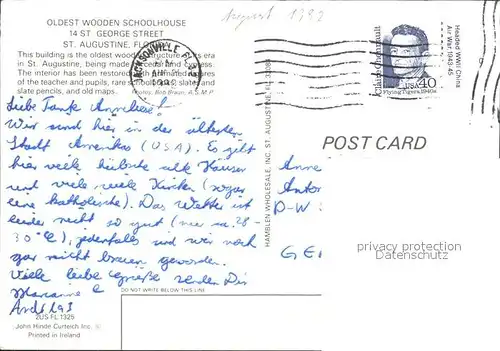 OLDEST WOODEN SCHOOLHOUSE
14 ST GEORGE STREET
ST. AUGUSTINE, FL
This building is the oldest wooden era
in St. Augustine, being made of and
The interior has been restored with
of the teacher and pupils, rare school
slate pencils, and old maps.
Photo: Bob Braun, A.S.M.P.
August 1992
JACKSONVILLE FL
PM
1992
Claire Chennault
Flying Tigers 1940s
USA 40
Headed WWII China
Air War 1943-45
Liebe Tante Anneliese!
Wir sind hier in der ältesten
Stadt Amerikas (USA). Es gibt
hier viele hübsche alte Häuser
und viele viele Kirchen (sogar
eine katholische). Das Wetter ist
leider nicht so gut (nur ca. 28-
30°C), jedenfalls sind wir noch
gar nicht braun geworden.
Viele liebe Grüße senden Dir
Marianne &
Andreas
HAMBLEN WHOLESALE, INC. ST. AUGUSTINE, FL 32084
POST CARD
Anne
Anton
D-W
GE
privacy protection
Datenschutz
DO NOT WRITE BELOW THIS LINE
2US FL 1325
John Hinde Curteich Inc.
Printed in Ireland